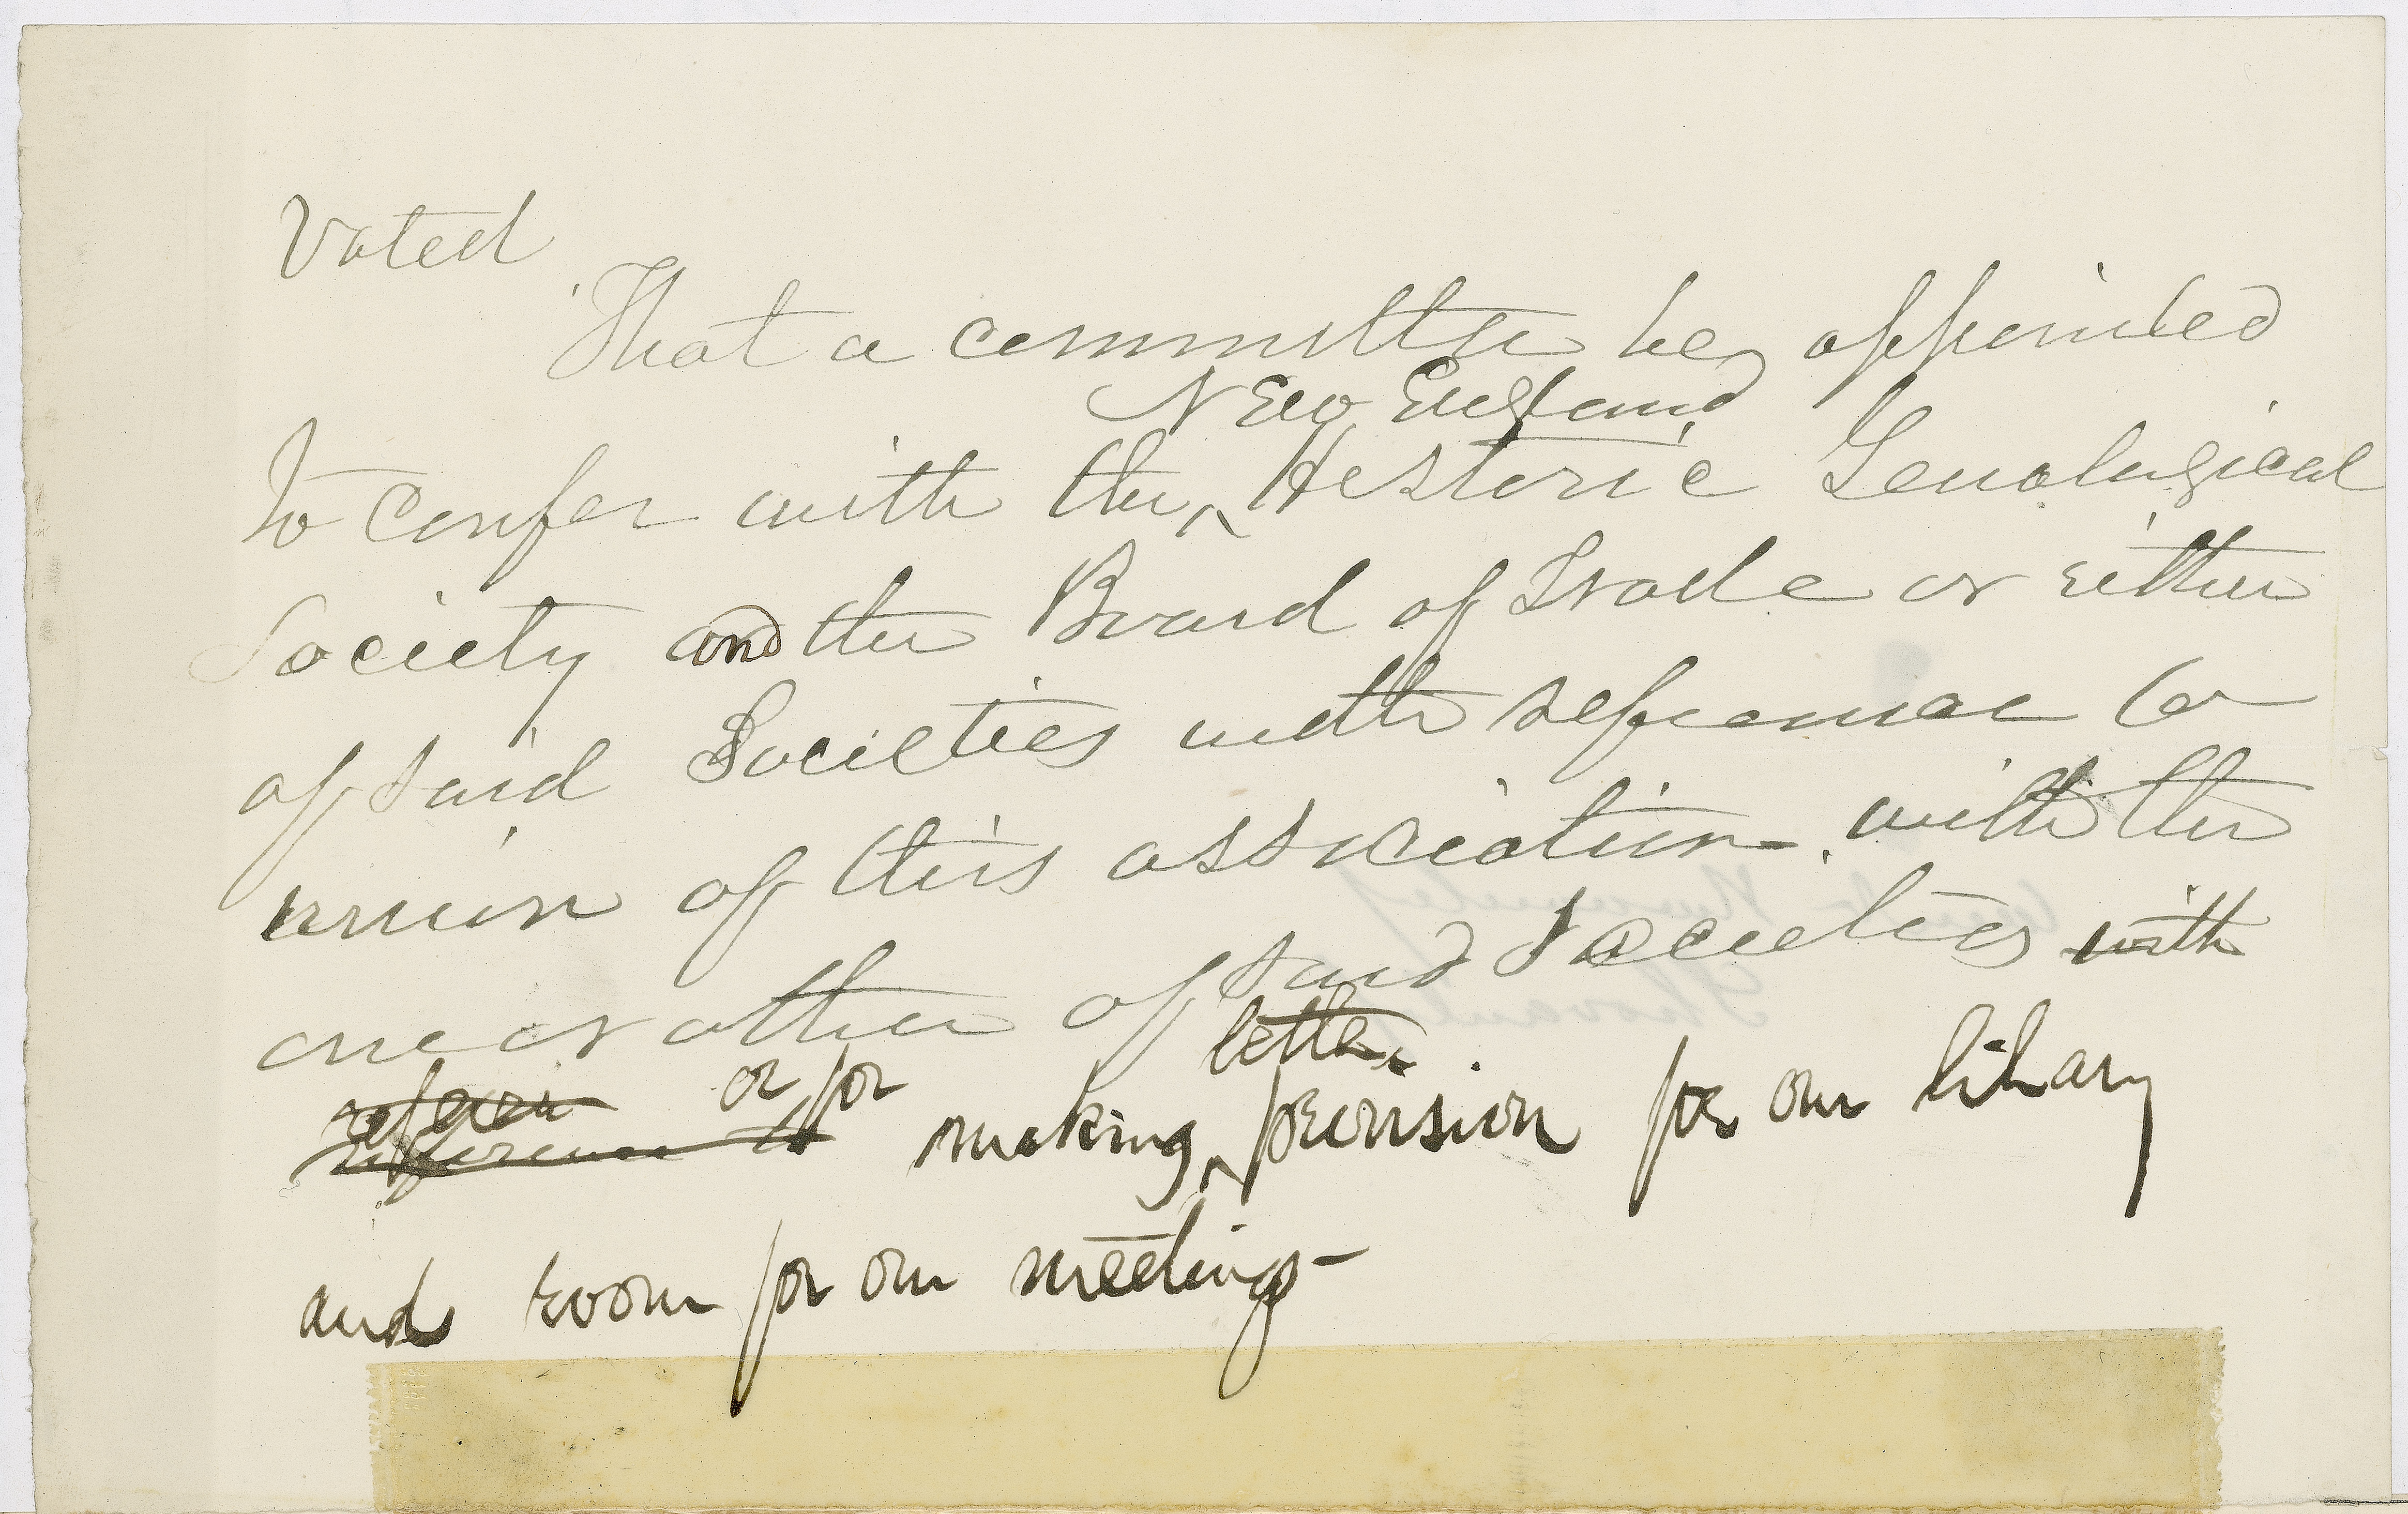 Voted
That a committee be appointed
New England
to confer with the ^ Historic Genological
Society and the Board of Trade or either
of said Societies with reference to
union of this association with the
one or other of said Societies with
letter
refern or for
reference to making ^ provision for our library
and room for our meetings-